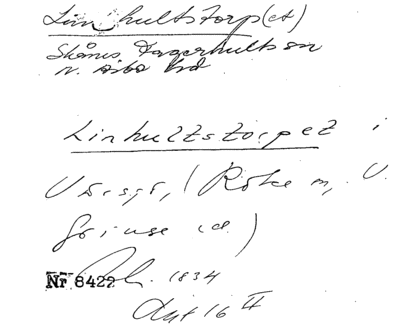 Linhultstorp(et)
Skånes Fagerhults sn
N. Åsbo hd
Linhultstorpet i
(Röke sn, V.
Göinge hd)
Nr 8422 1834
Akt 16 II